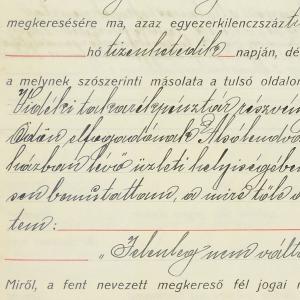 megkeresésére ma, azaz egyezerkilenczszáz
hó tizenhetedik napján, dé
a melynek szószerinti másolata a tulsó oldalon
Vidéki takarékpénztár részvén
Odán elfogadónak Alsólendva
házban lévő üzleti helyiségében
sen bemutattam, a mire tőle a
tem:
„Jelenleg nem vált
Miről, a fent nevezett megkereső fél jogai